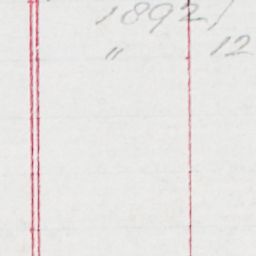 1892
" 12